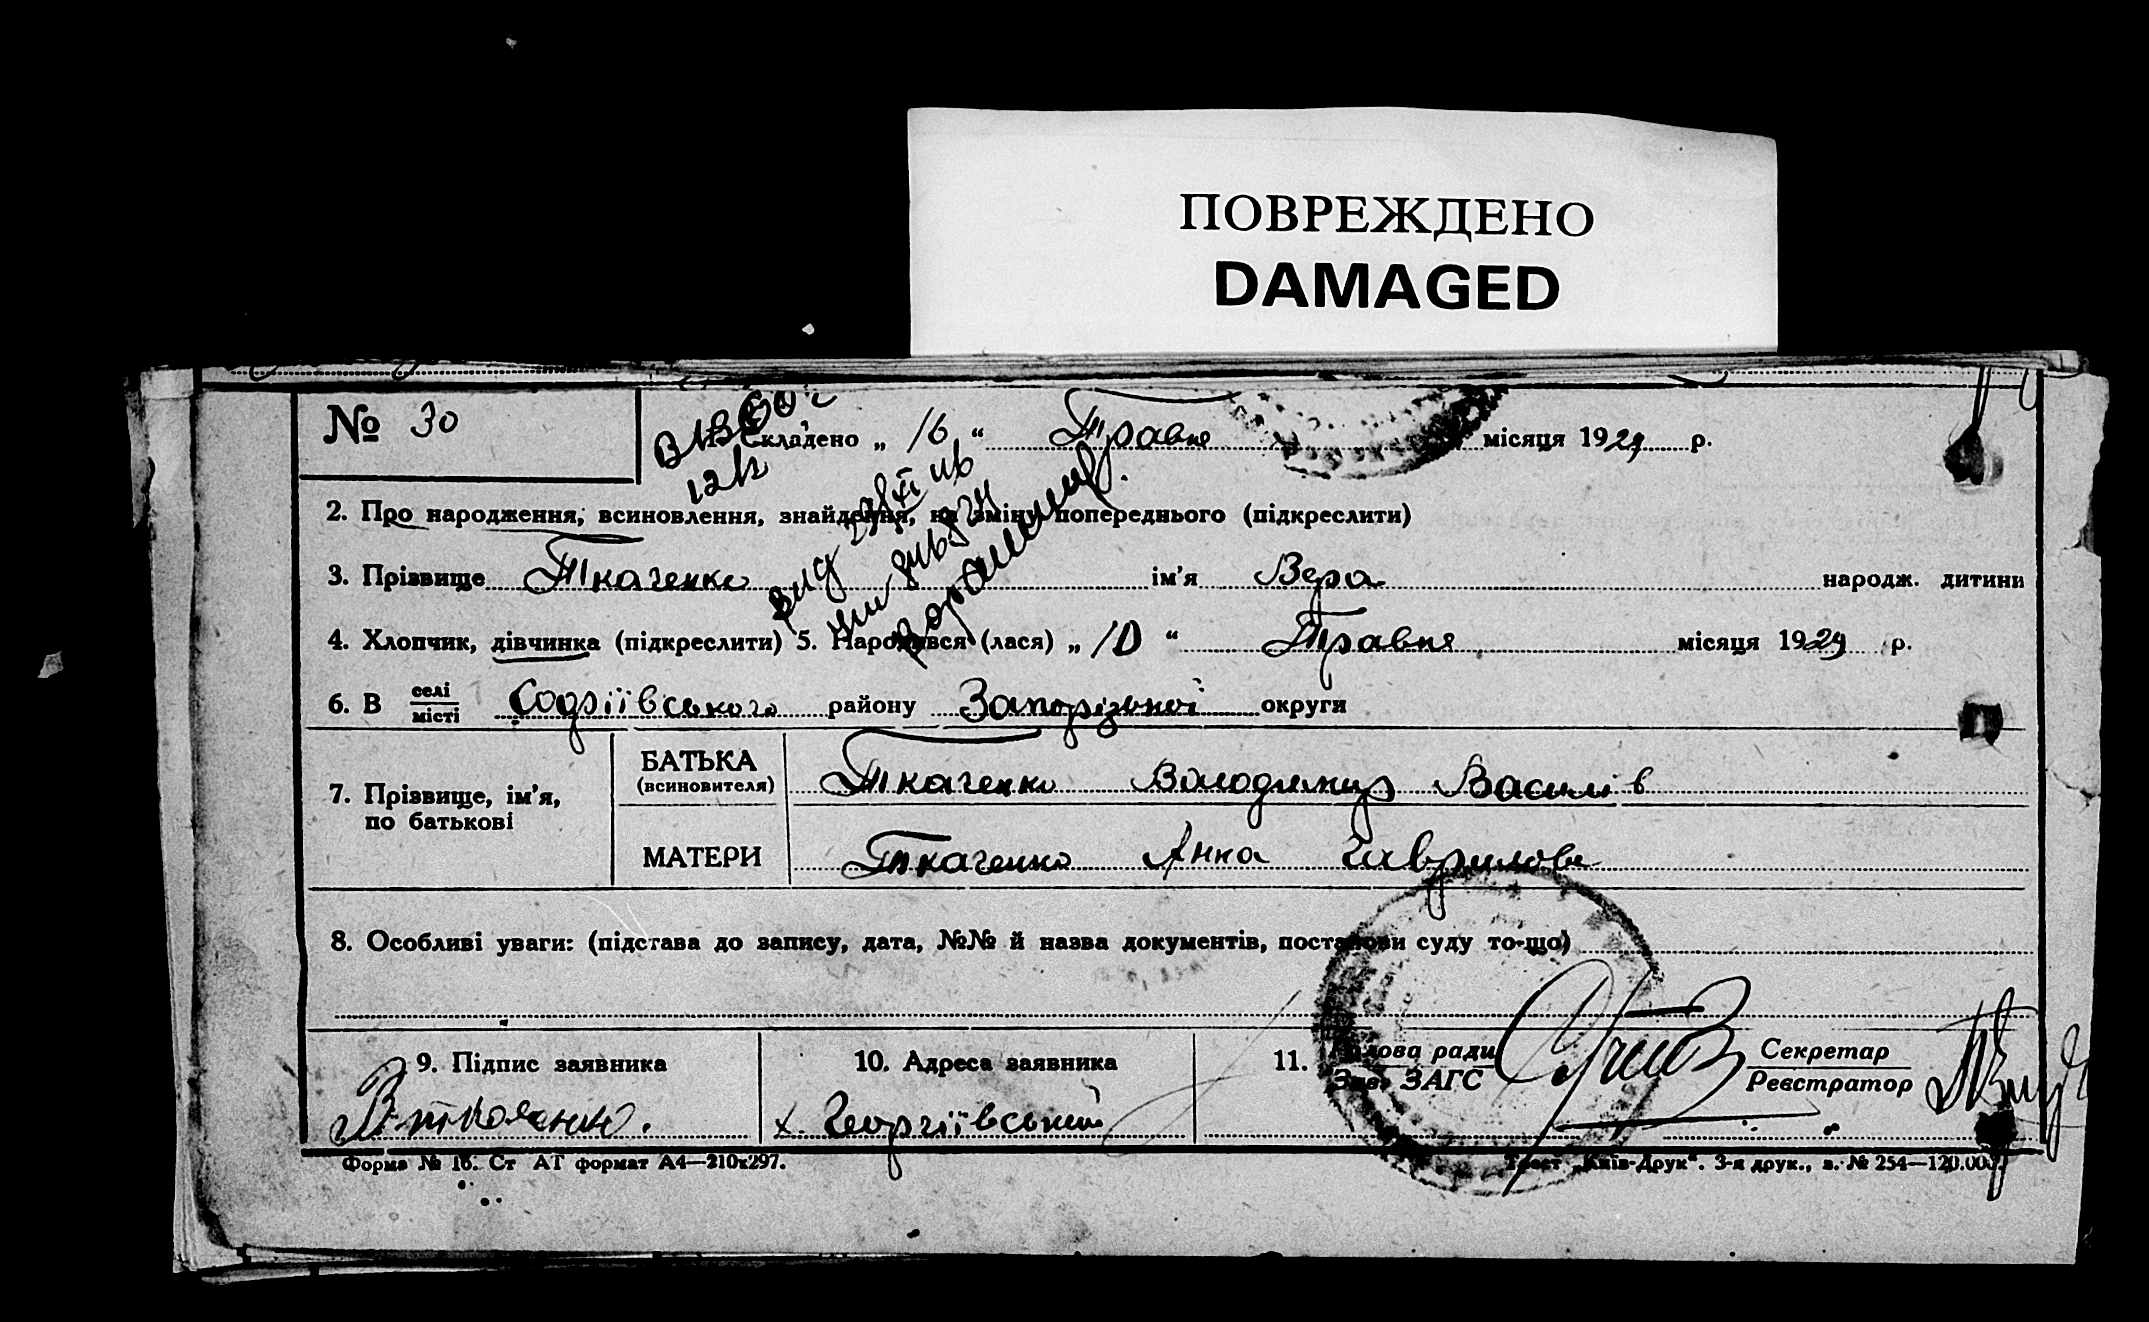 ПОВРЕЖДЕНО
DAMAGED
№ 30
Складено „ 16 “ Травня місяця 1929 р.
2. Про народження, всиновлення, знайдення, на зміну попереднього (підкреслити)
3. Прізвище Ткаченко ім'я Вера народж. дитини
4. Хлопчик, дівчинка (підкреслити) 5. Народився (лася) „ 10 “ Травня місяця 1929 р.
6. В селі
місті Софіївського району Запорізької округи
7. Прізвище, ім'я,
по батькові
БАТЬКА
(всиновителя)
Ткаченко Володимир Василів
МАТЕРИ
Ткаченко Анна Гаврилова
8. Особливі уваги: (підстава до запису, дата, №№ й назва документів, постанови суду то-що)
9. Підпис заявника
В. Ткаченко.
10. Адреса заявника
х. Георгіївський
11. Голова ради
Зав. ЗАГС
Секретар
Реєстратор
Форма № 1б. Ст АТ формат А4—210х297.
Трест „Київ-Друк“. 3-я друк., з. № 254—120.000.